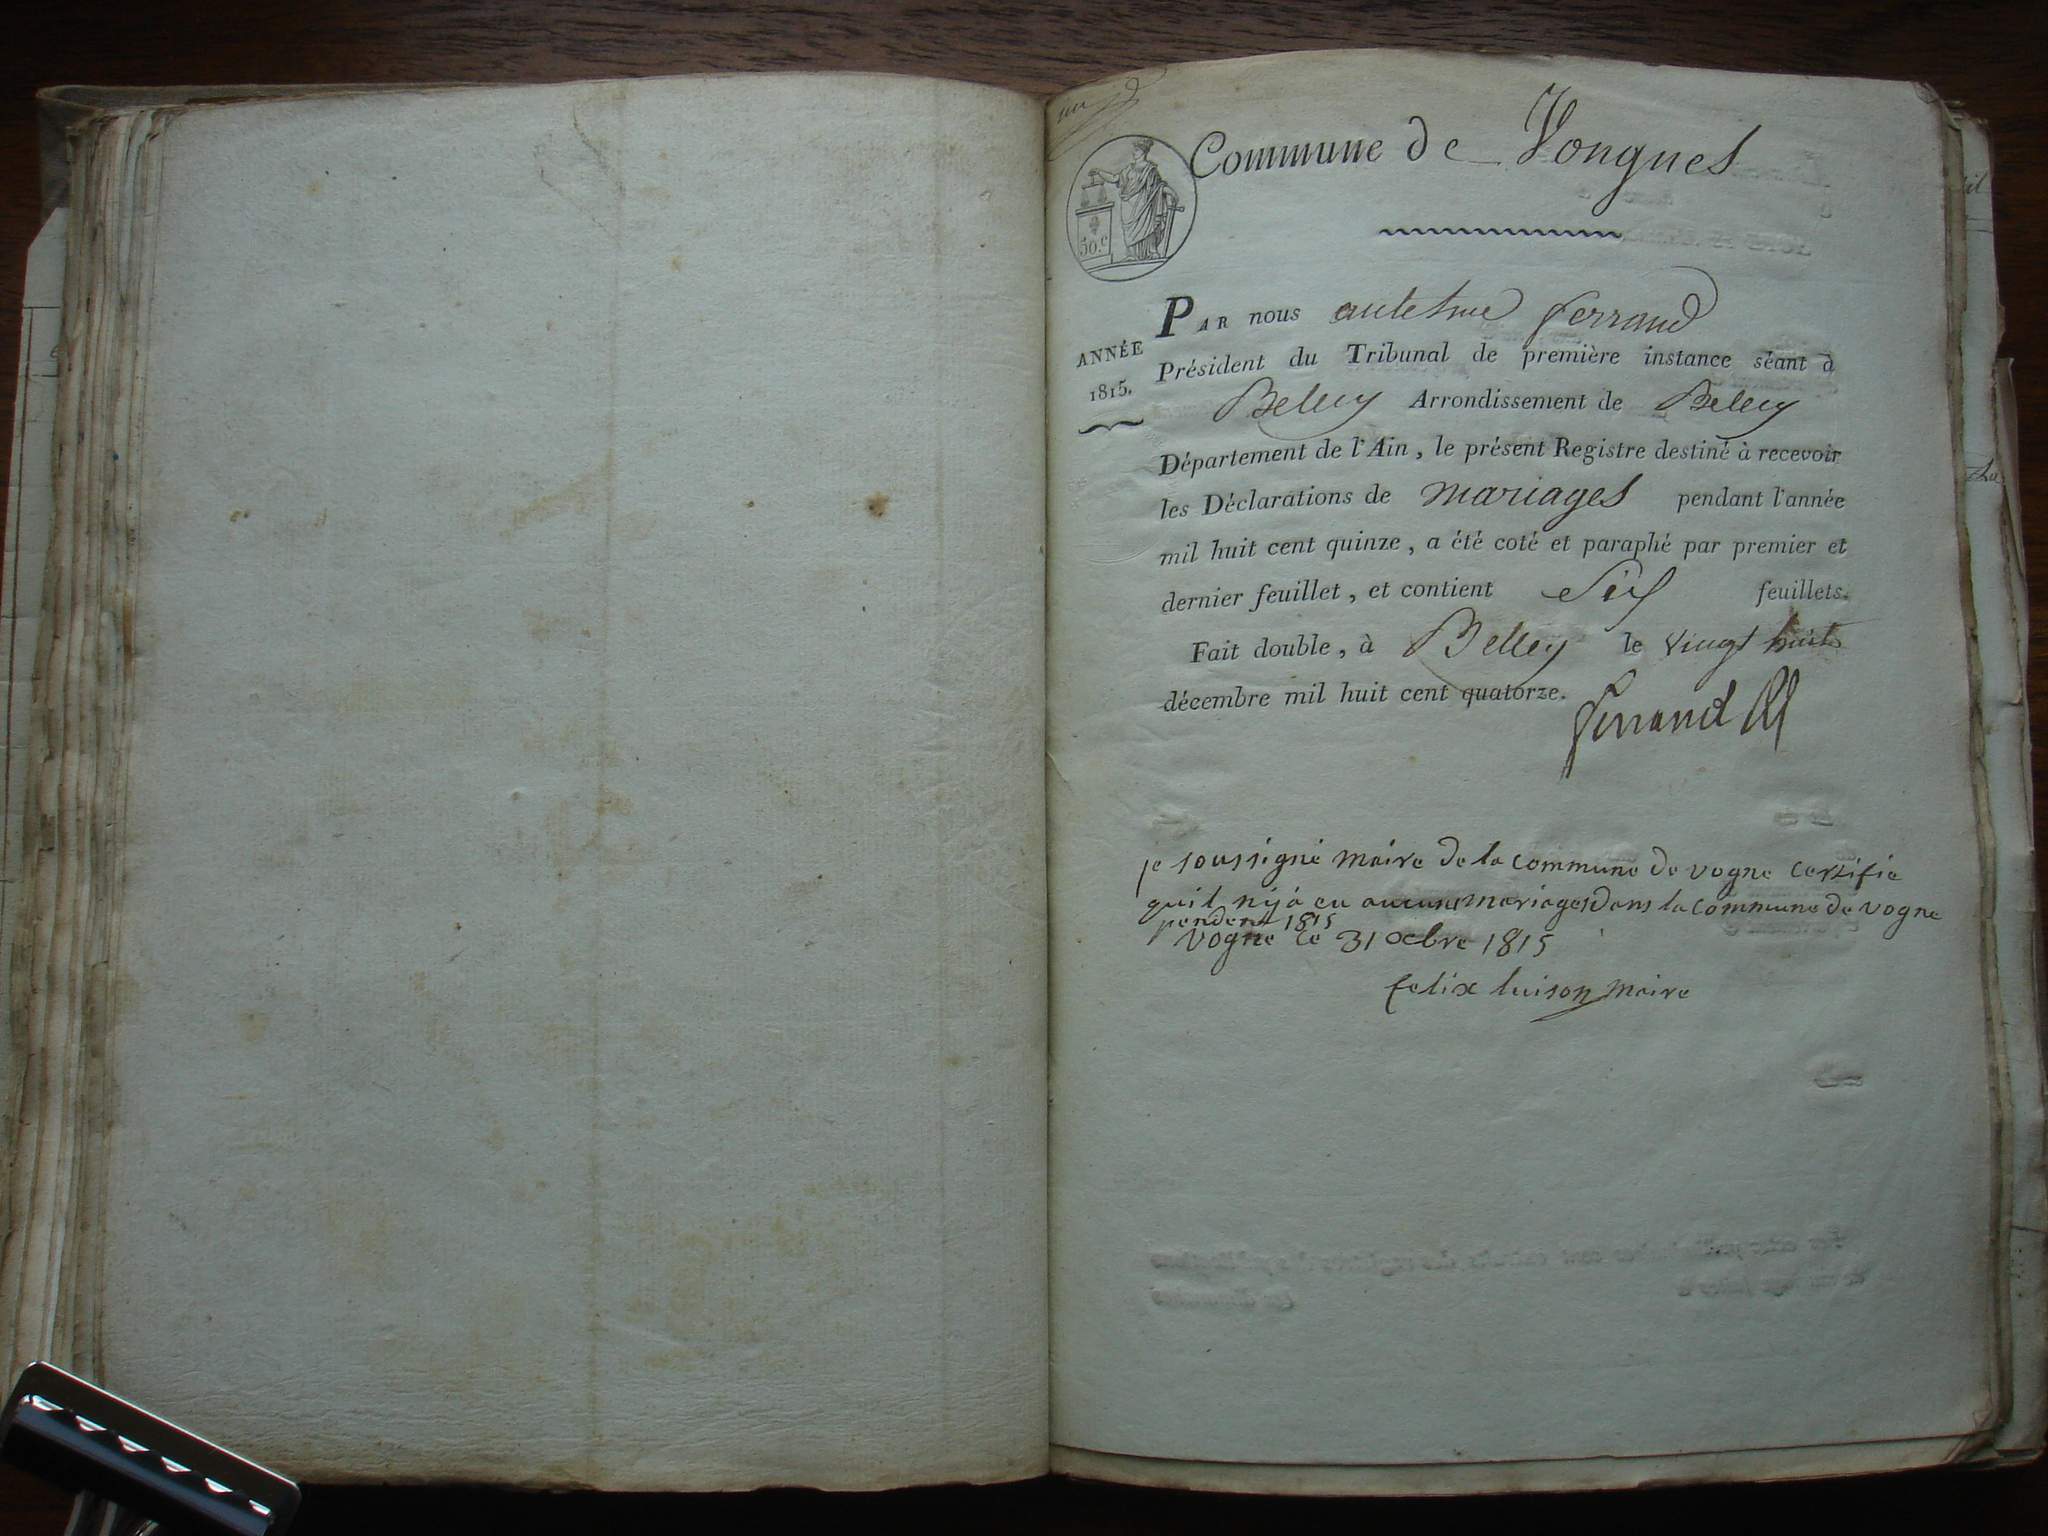 Commune de Vongnes
50.c
ANNÉE
1815.
PAR nous anthelme ferrand
Président du Tribunal de première instance séant à
Belley Arrondissement de Belley
Département de l'Ain, le présent Registre destiné à recevoir
les Déclarations de mariages pendant l'année
mil huit cent quinze, a été coté et paraphé par premier et
dernier feuillet, et contient Six feuillets.
Fait double, à Belley le vingt huit
décembre mil huit cent quatorze.
ferrand
je soussigné maire de la commune de vogne certifie
quil ny a eu aucuns mariages dans la commune de vogne
pendent 1815
vogne le 31 octbre 1815
felix luison maire